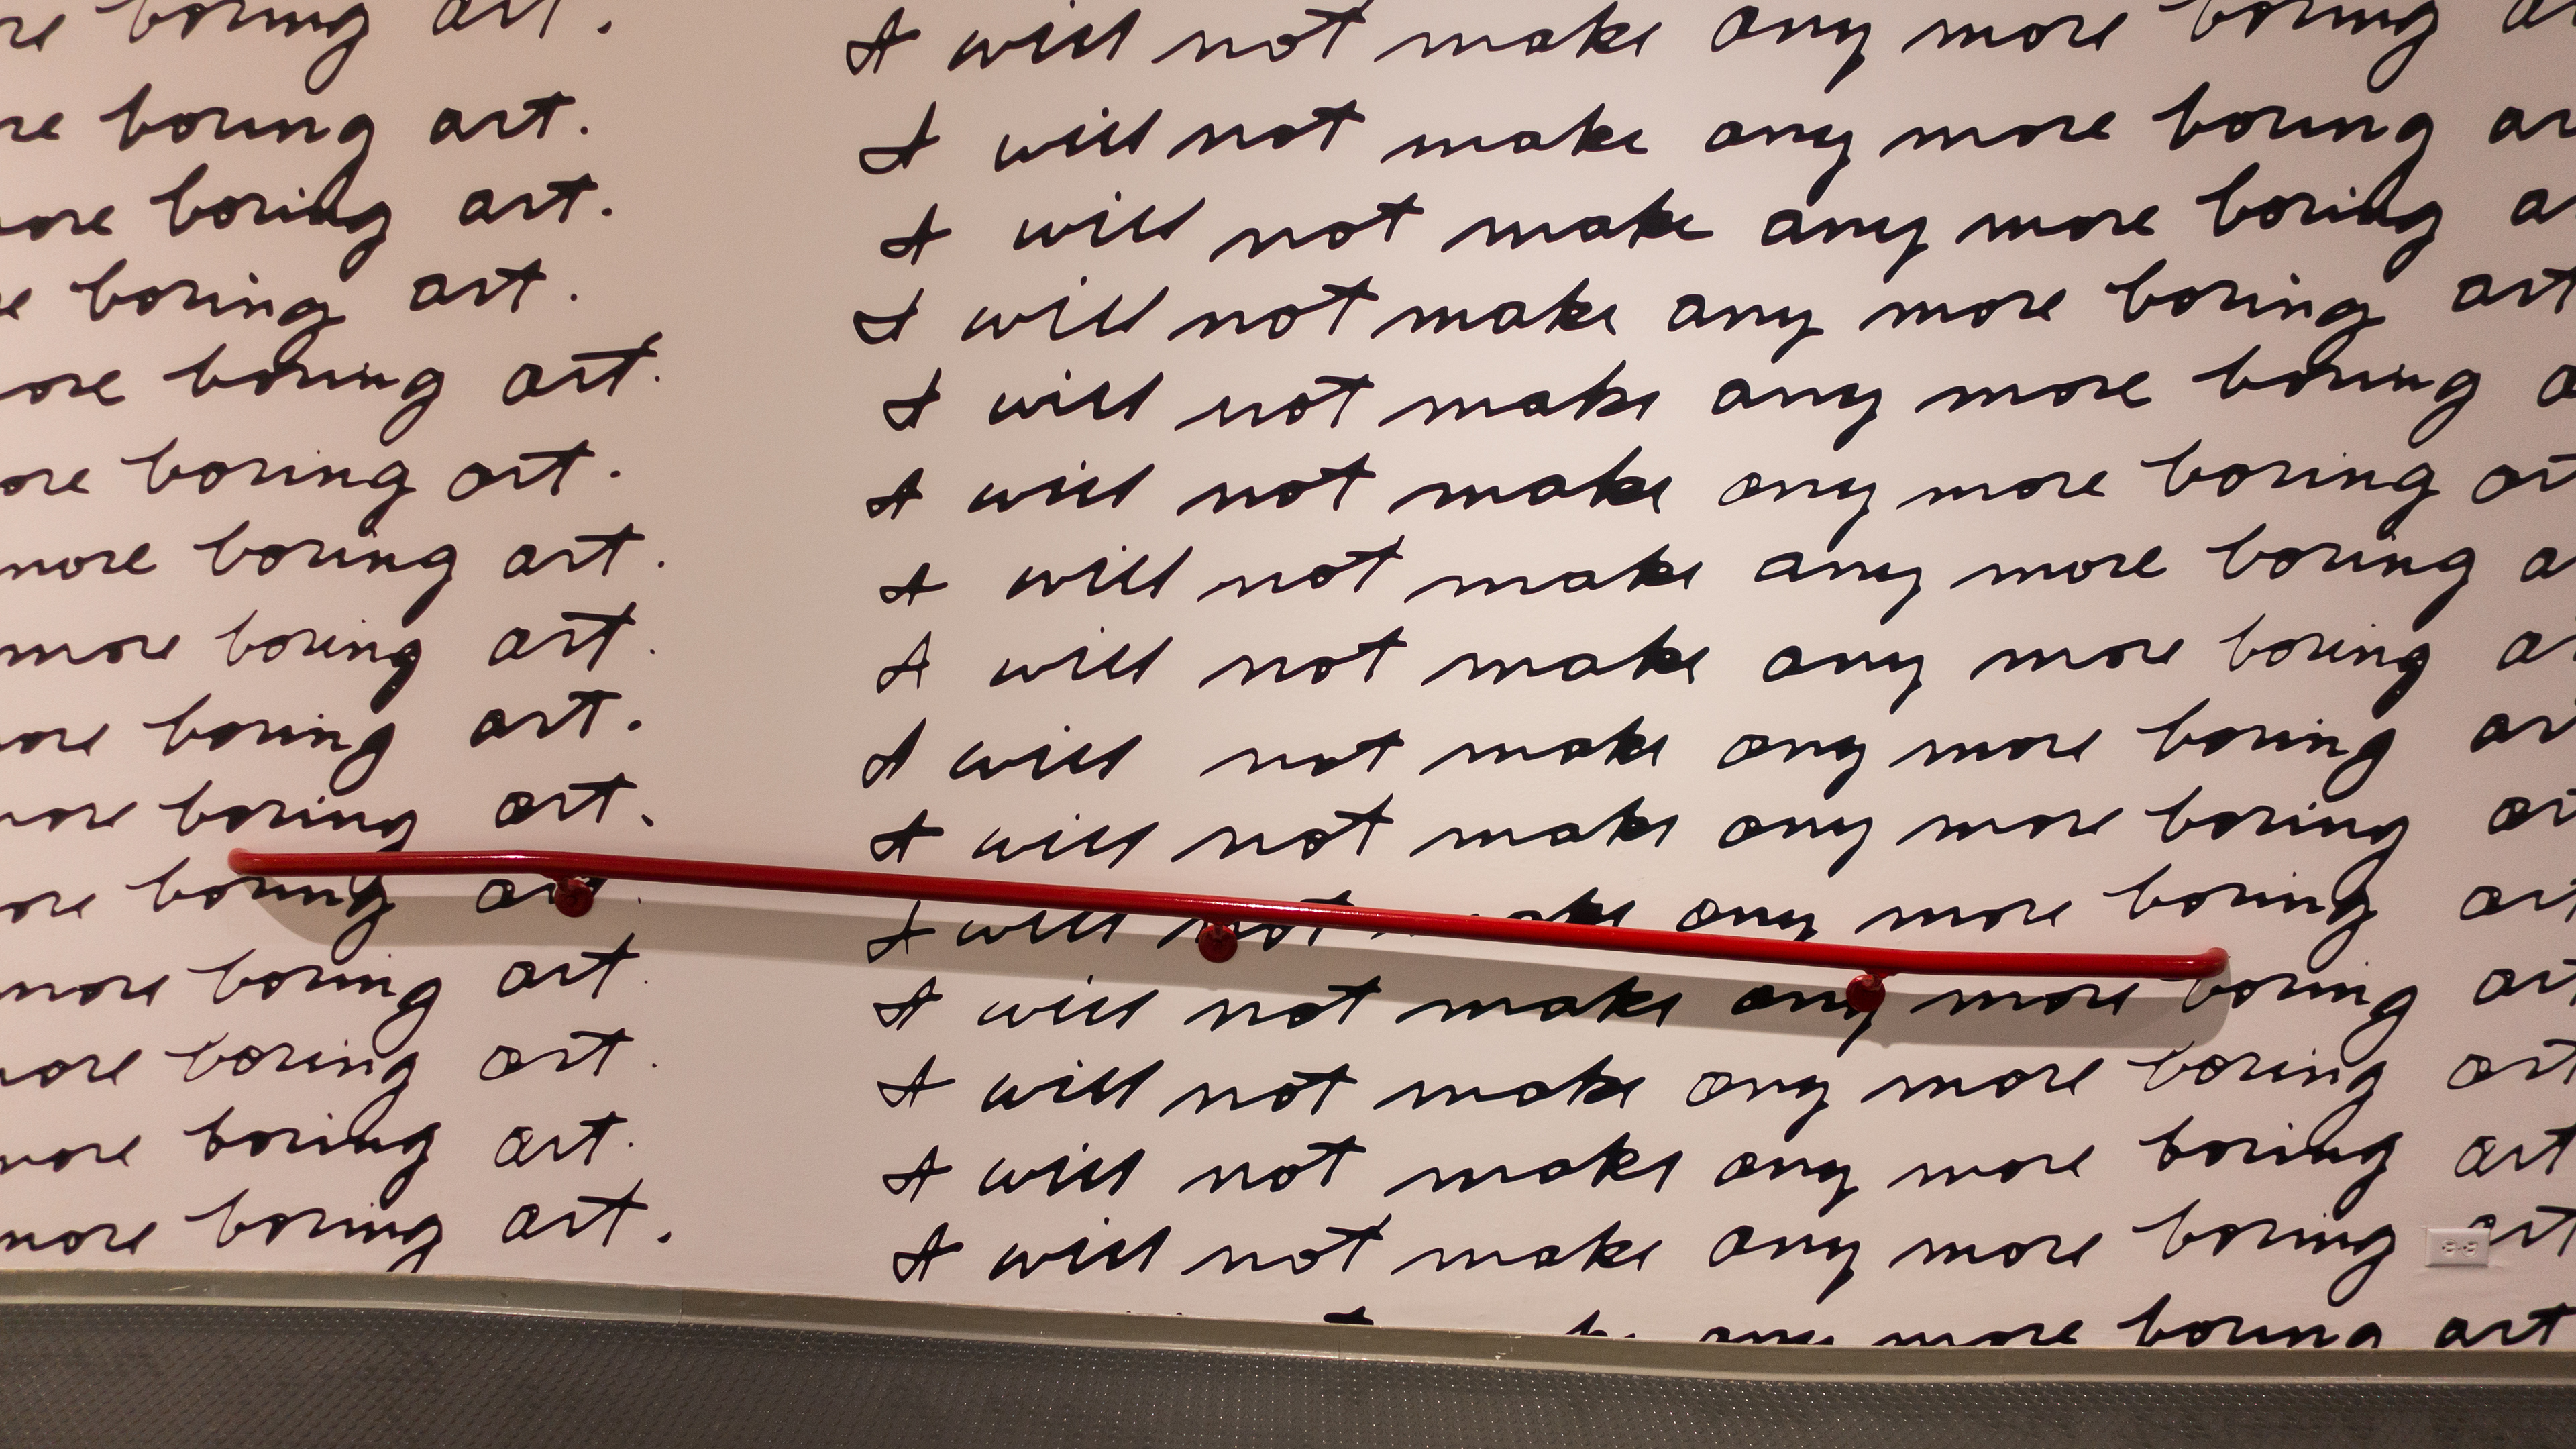 re boring art.
re boring art.
ore boring art.
e boring art.
ore boring art.
ore boring art.
more boring art.
more boring art.
ore boring art.
more boring art.
ore boring ar
more boring art.
ore boring art.
more boring art.
more boring art.
I will not make any more boring ar
I will not make any more boring ar
I will not make any more boring a
I will not make any more boring art
I will not make any more boring a
I will not make any more boring art
I will not make any more boring a
I will not make any more boring ar
I will not make any more boring ar
I will not make any more boring ar
I will not make any more boring art
I will not make any more boring art
I will not make any more boring art
I will not make any more boring art
I will not make any more boring art
any more boring art